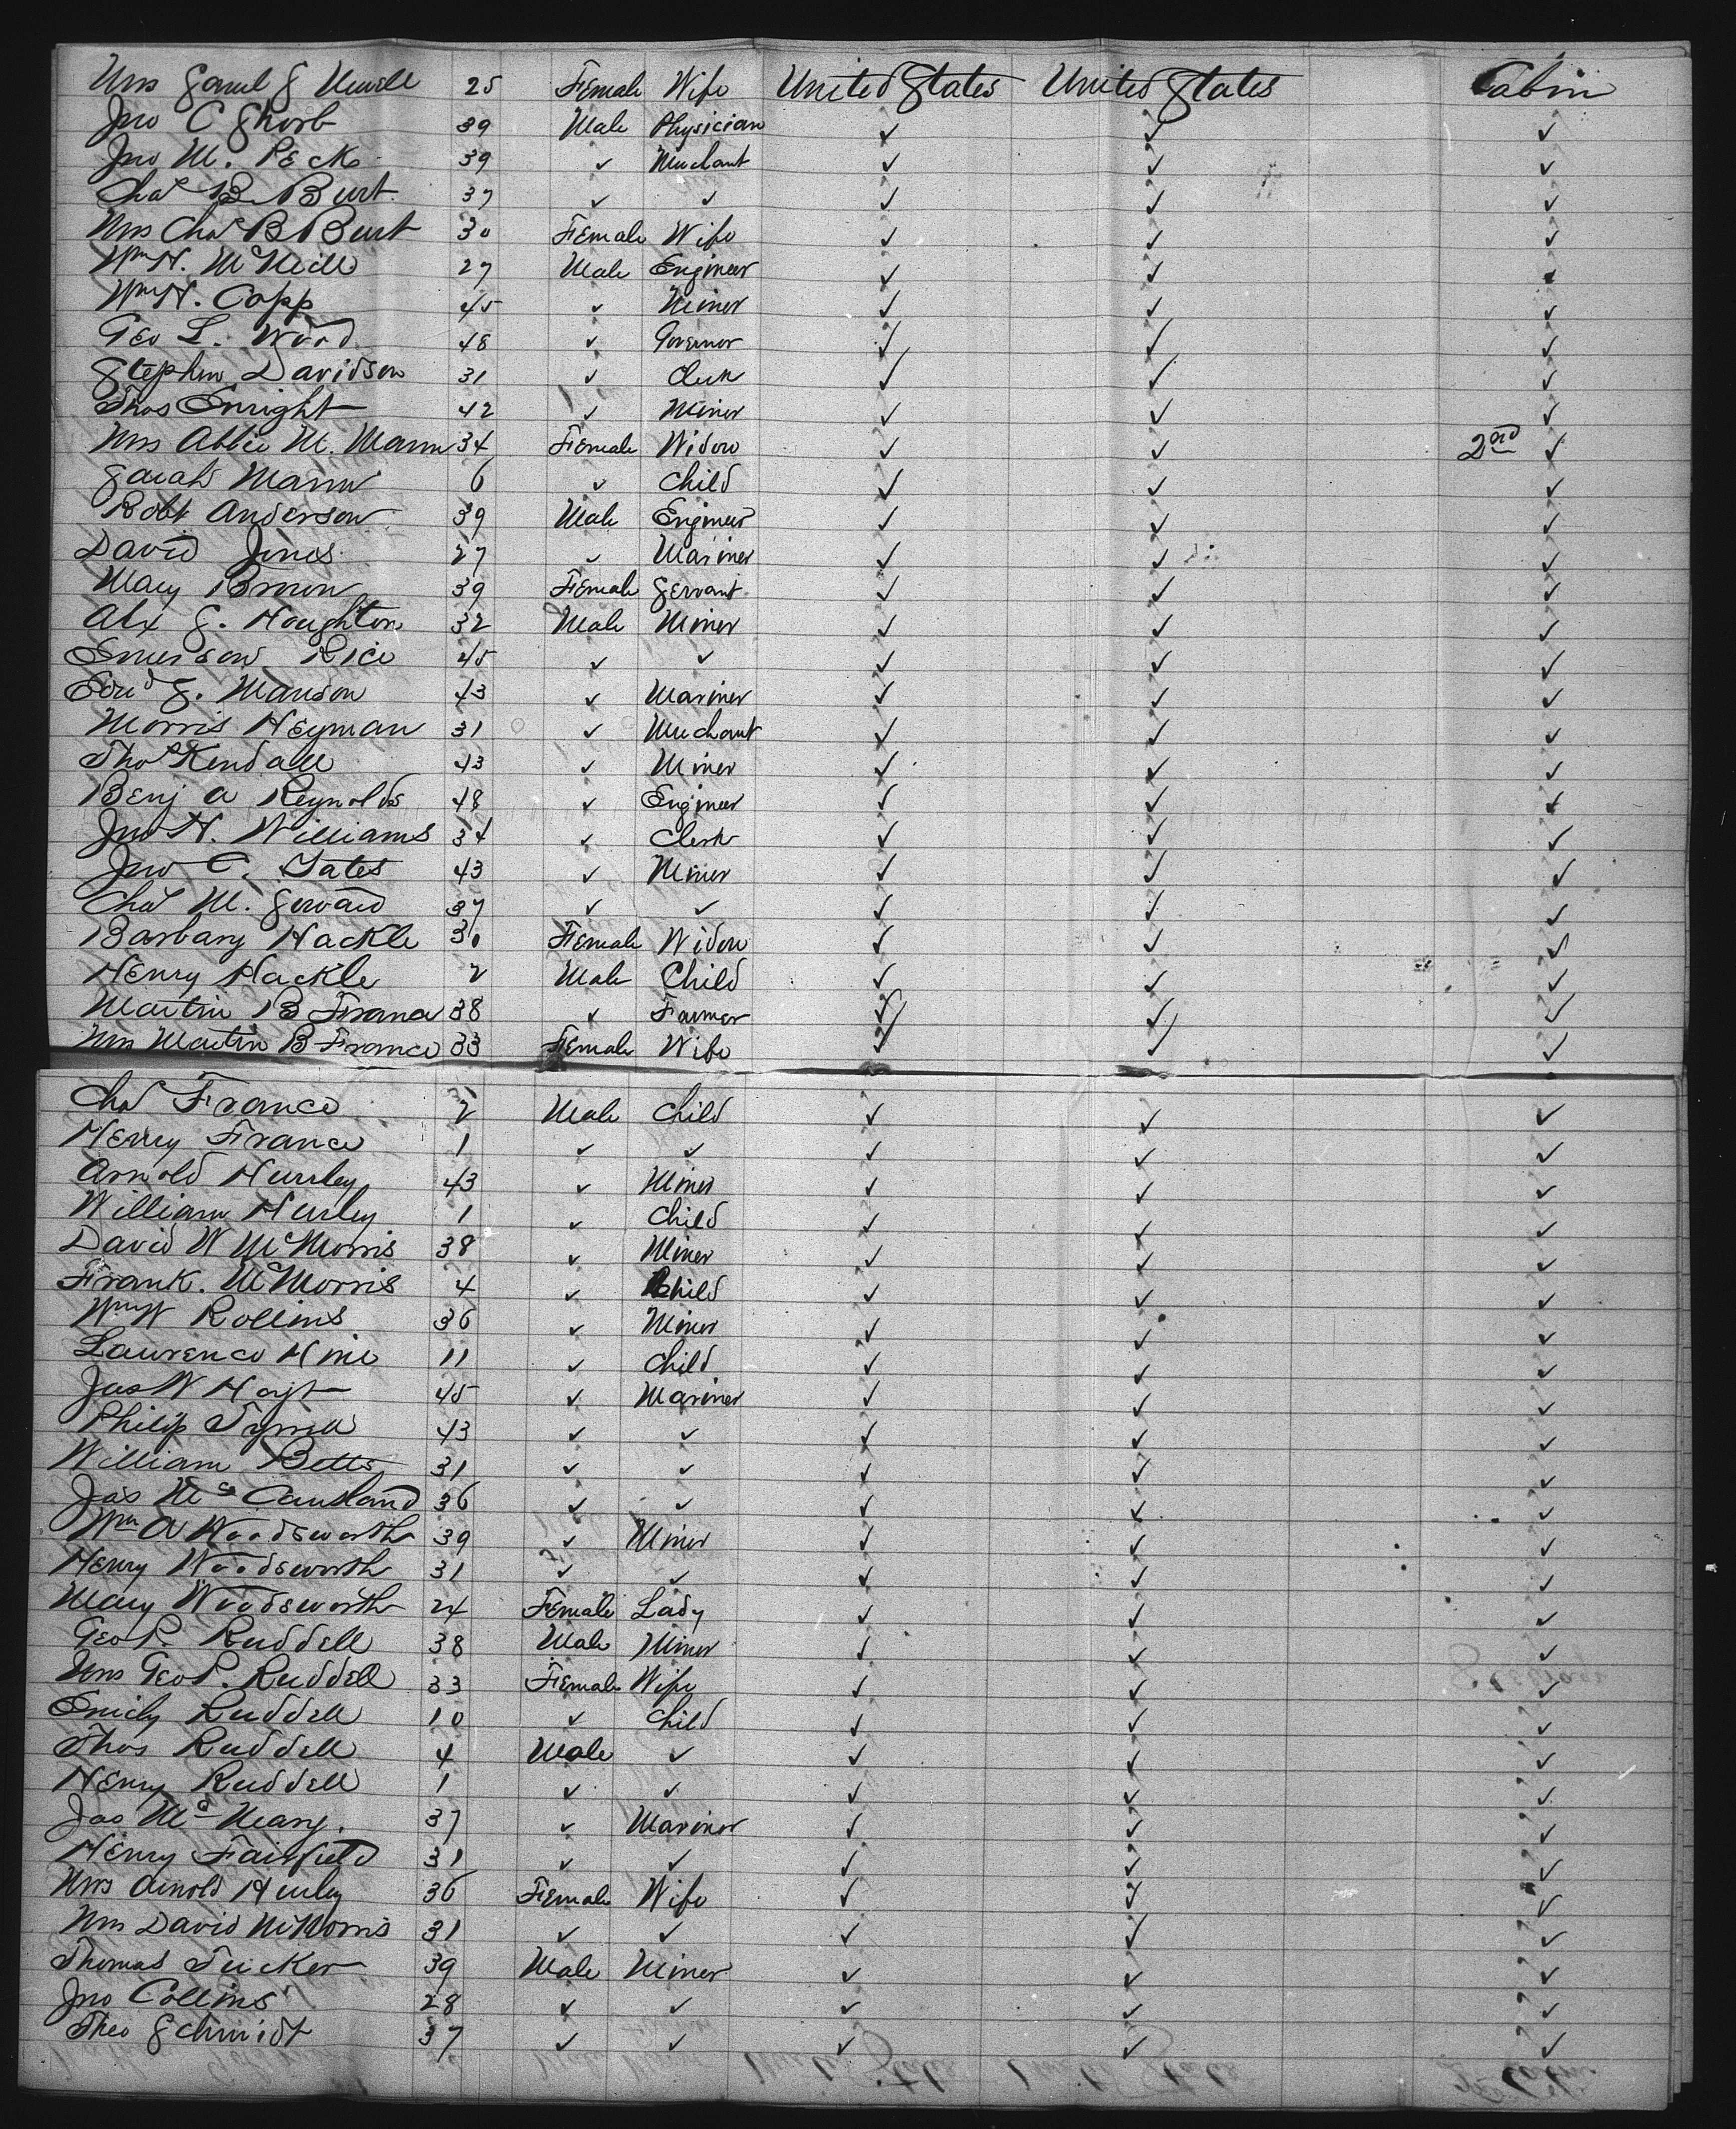 Mrs Saml S Newell 25 Female Wife United States United States Cabin
Jno C Shorb 39 Male Physician ✓ ✓ ✓
Jno M. Peck 39 ✓ Merchant ✓ ✓ ✓
Chas B Burt 37 ✓ ✓ ✓ ✓ ✓
Mrs Chas B Burt 30 Female Wife ✓ ✓ ✓
Wm H. McNeill 27 Male Engineer ✓ ✓ ✓
Wm H. Copp 45 ✓ Miner ✓ ✓ ✓
Geo L. Wood 48 ✓ Governor ✓ ✓ ✓
Stephen Davidson 31 ✓ Clerk ✓ ✓ ✓
Thos Enright 42 ✓ Miner ✓ ✓ ✓
Mrs Abbie M. Mann 34 Female Widow ✓ ✓ 2nd ✓
Sarah Mann 6 ✓ Child ✓ ✓ ✓
Robt Anderson 39 Male Engineer ✓ ✓ ✓
David Jones 27 ✓ Mariner ✓ ✓ ✓
Mary Brown 39 Female Servant ✓ ✓ ✓
Alex S. Houghton 32 Male Miner ✓ ✓ ✓
Emerson Rice 45 ✓ ✓ ✓ ✓ ✓
Edwd S. Manson 43 ✓ Mariner ✓ ✓ ✓
Morris Heyman 31 ✓ Merchant ✓ ✓ ✓
Thos Kendall 43 ✓ Miner ✓ ✓ ✓
Benj A Reynolds 48 ✓ Engineer ✓ ✓ ✓
Jno H. Williams 34 ✓ Clerk ✓ ✓ ✓
Jno C. Yates 43 ✓ Miner ✓ ✓ ✓
Chas M. Seward 37 ✓ ✓ ✓ ✓ ✓
Barbary Hackle 30 Female Widow ✓ ✓ ✓
Henry Hackle 2 Male Child ✓ ✓ ✓
Martin B France 38 ✓ Farmer ✓ ✓ ✓
Mrs Martin B France 33 Female Wife ✓ ✓ ✓
Chas France 2 Male Child ✓ ✓ ✓
Henry France 1 ✓ ✓ ✓ ✓ ✓
Arnold Hurley 43 ✓ Miner ✓ ✓ ✓
William Hurley 1 ✓ Child ✓ ✓ ✓
David W McMorris 38 ✓ Miner ✓ ✓ ✓
Frank. McMorris 4 ✓ Child ✓ ✓ ✓
Wm W Rollins 36 ✓ Miner ✓ ✓ ✓
Laurence Hine 11 ✓ Child ✓ ✓ ✓
Jas W Hoyt 45 ✓ Mariner ✓ ✓ ✓
Philip Tyrrell 43 ✓ ✓ ✓ ✓ ✓
William Betts 31 ✓ ✓ ✓ ✓ ✓
Jas McCausland 36 ✓ ✓ ✓ ✓ ✓
Wm A Woodsworth 39 ✓ Miner ✓ ✓ ✓
Henry Woodsworth 31 ✓ ✓ ✓ ✓ ✓
Mary Woodsworth 24 Female Lady ✓ ✓ ✓
Geo P. Ruddell 38 Male Miner ✓ ✓ ✓
Mrs Geo P. Ruddell 33 Female Wife ✓ ✓ ✓
Emily Ruddell 10 ✓ Child ✓ ✓ ✓
Thos Ruddell 4 Male ✓ ✓ ✓ ✓
Henry Ruddell 1 ✓ ✓ ✓ ✓ ✓
Jas McNeary. 37 ✓ Mariner ✓ ✓ ✓
Henry Fairfield 31 ✓ ✓ ✓ ✓ ✓
Mrs Arnold Hurley 36 Female Wife ✓ ✓ ✓
Mrs David McMorris 31 ✓ ✓ ✓ ✓ ✓
Thomas Tucker 39 Male Miner ✓ ✓ ✓
Jno Collins 28 ✓ ✓ ✓ ✓ ✓
Theo Schmidt 37 ✓ ✓ ✓ ✓ ✓